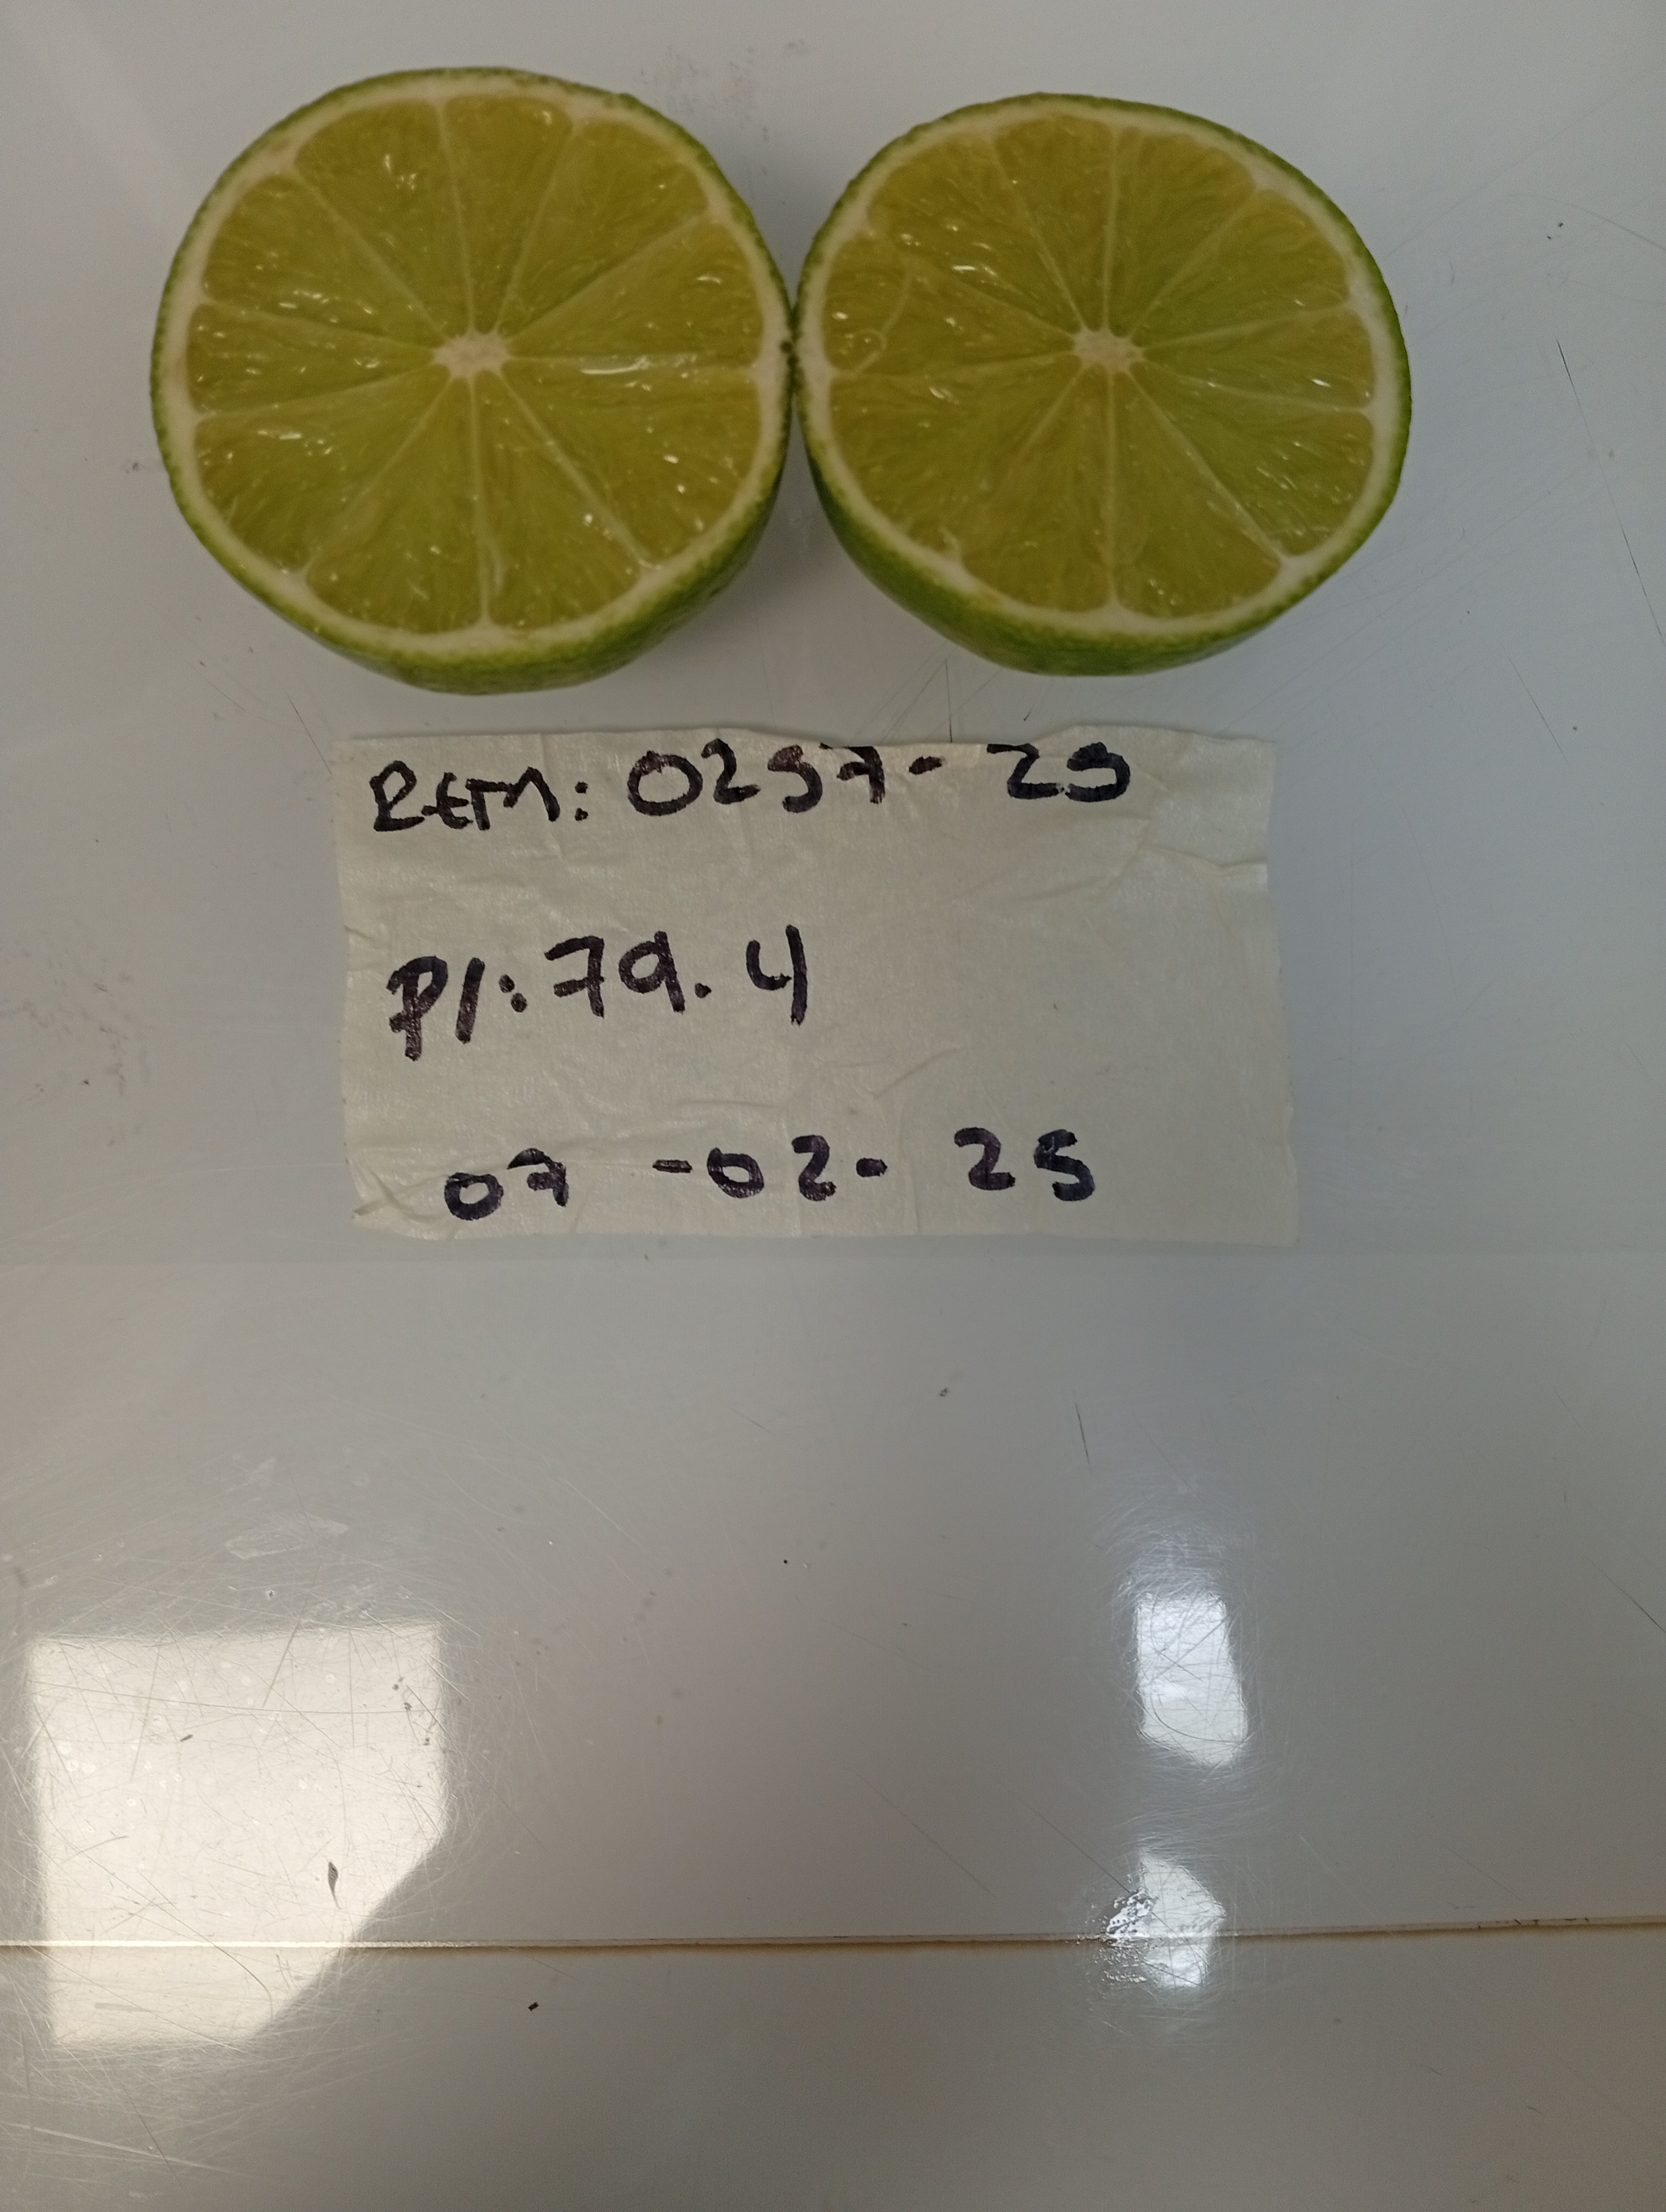 Rem: 0257-25
P/: 79.4
07-02-25